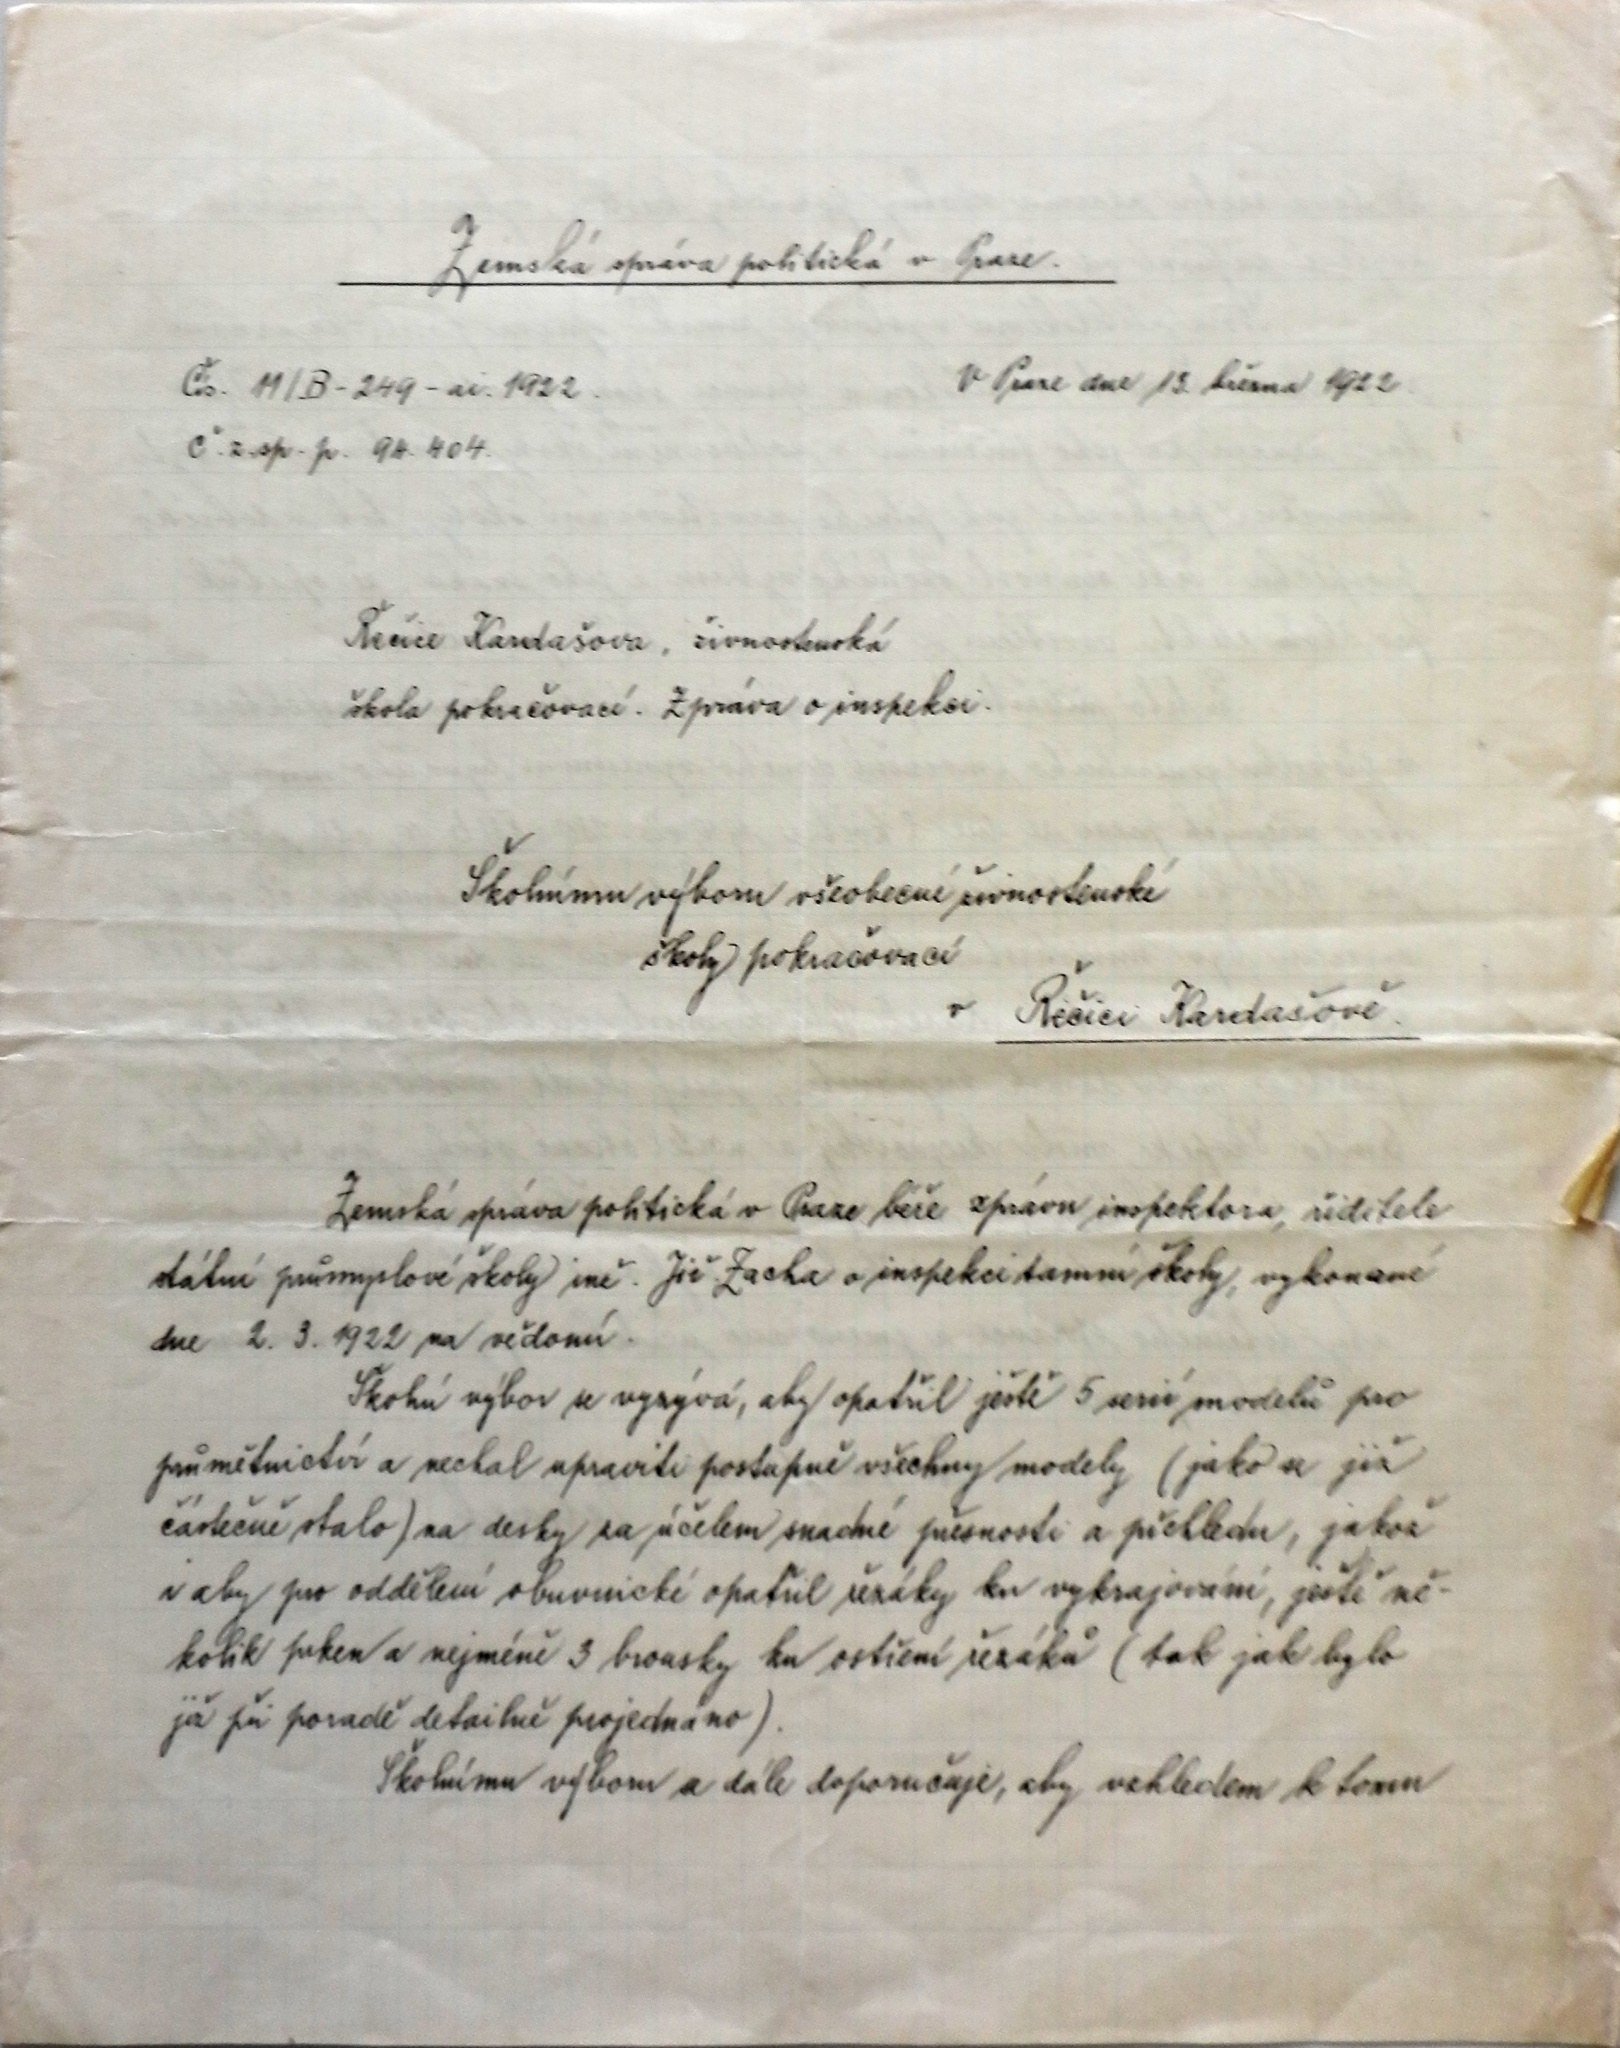 Zemská správa politická v Praze.
Čs. 11/B - 249 - ai. 1922.
V Praze dne 13. března 1922.
Č. z. sp. p. 94.404.
Řečice Kardašova, živnostenská
škola pokračovací. Zpráva o inspekci.
Školnímu výboru všeobecné živnostenské
školy pokračovací
v Řečici Kardašově.
Zemská správa politická v Praze béře zprávu inspektora, ředitele
státní průmyslové školy inž. Jiř. Zacha o inspekci tamní školy, vykonané
dne 2. 3. 1922 na vědomí.
Školní výbor se vyzývá, aby opatřil ještě 5 serií modelů pro
průmětnictví a nechal upraviti postupně všechny modely (jako se již
částečně stalo) na desky za účelem snadné přesnosti a přehledu, jakož
i aby pro oddělení obuvnické opatřil řezáky ku vykrajování, ještě ně-
kolik prken a nejméně 3 brousky ku ostření řezáků (tak jak bylo
již při poradě detailně projednáno).
Školnímu výboru se dále doporučuje, aby vzhledem k tomu